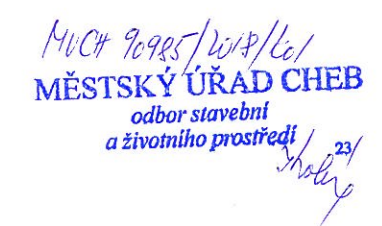 MUCH 90985/2018/Kol
MĚSTSKÝ ÚŘAD CHEB
odbor stavební
a životního prostředí
23/